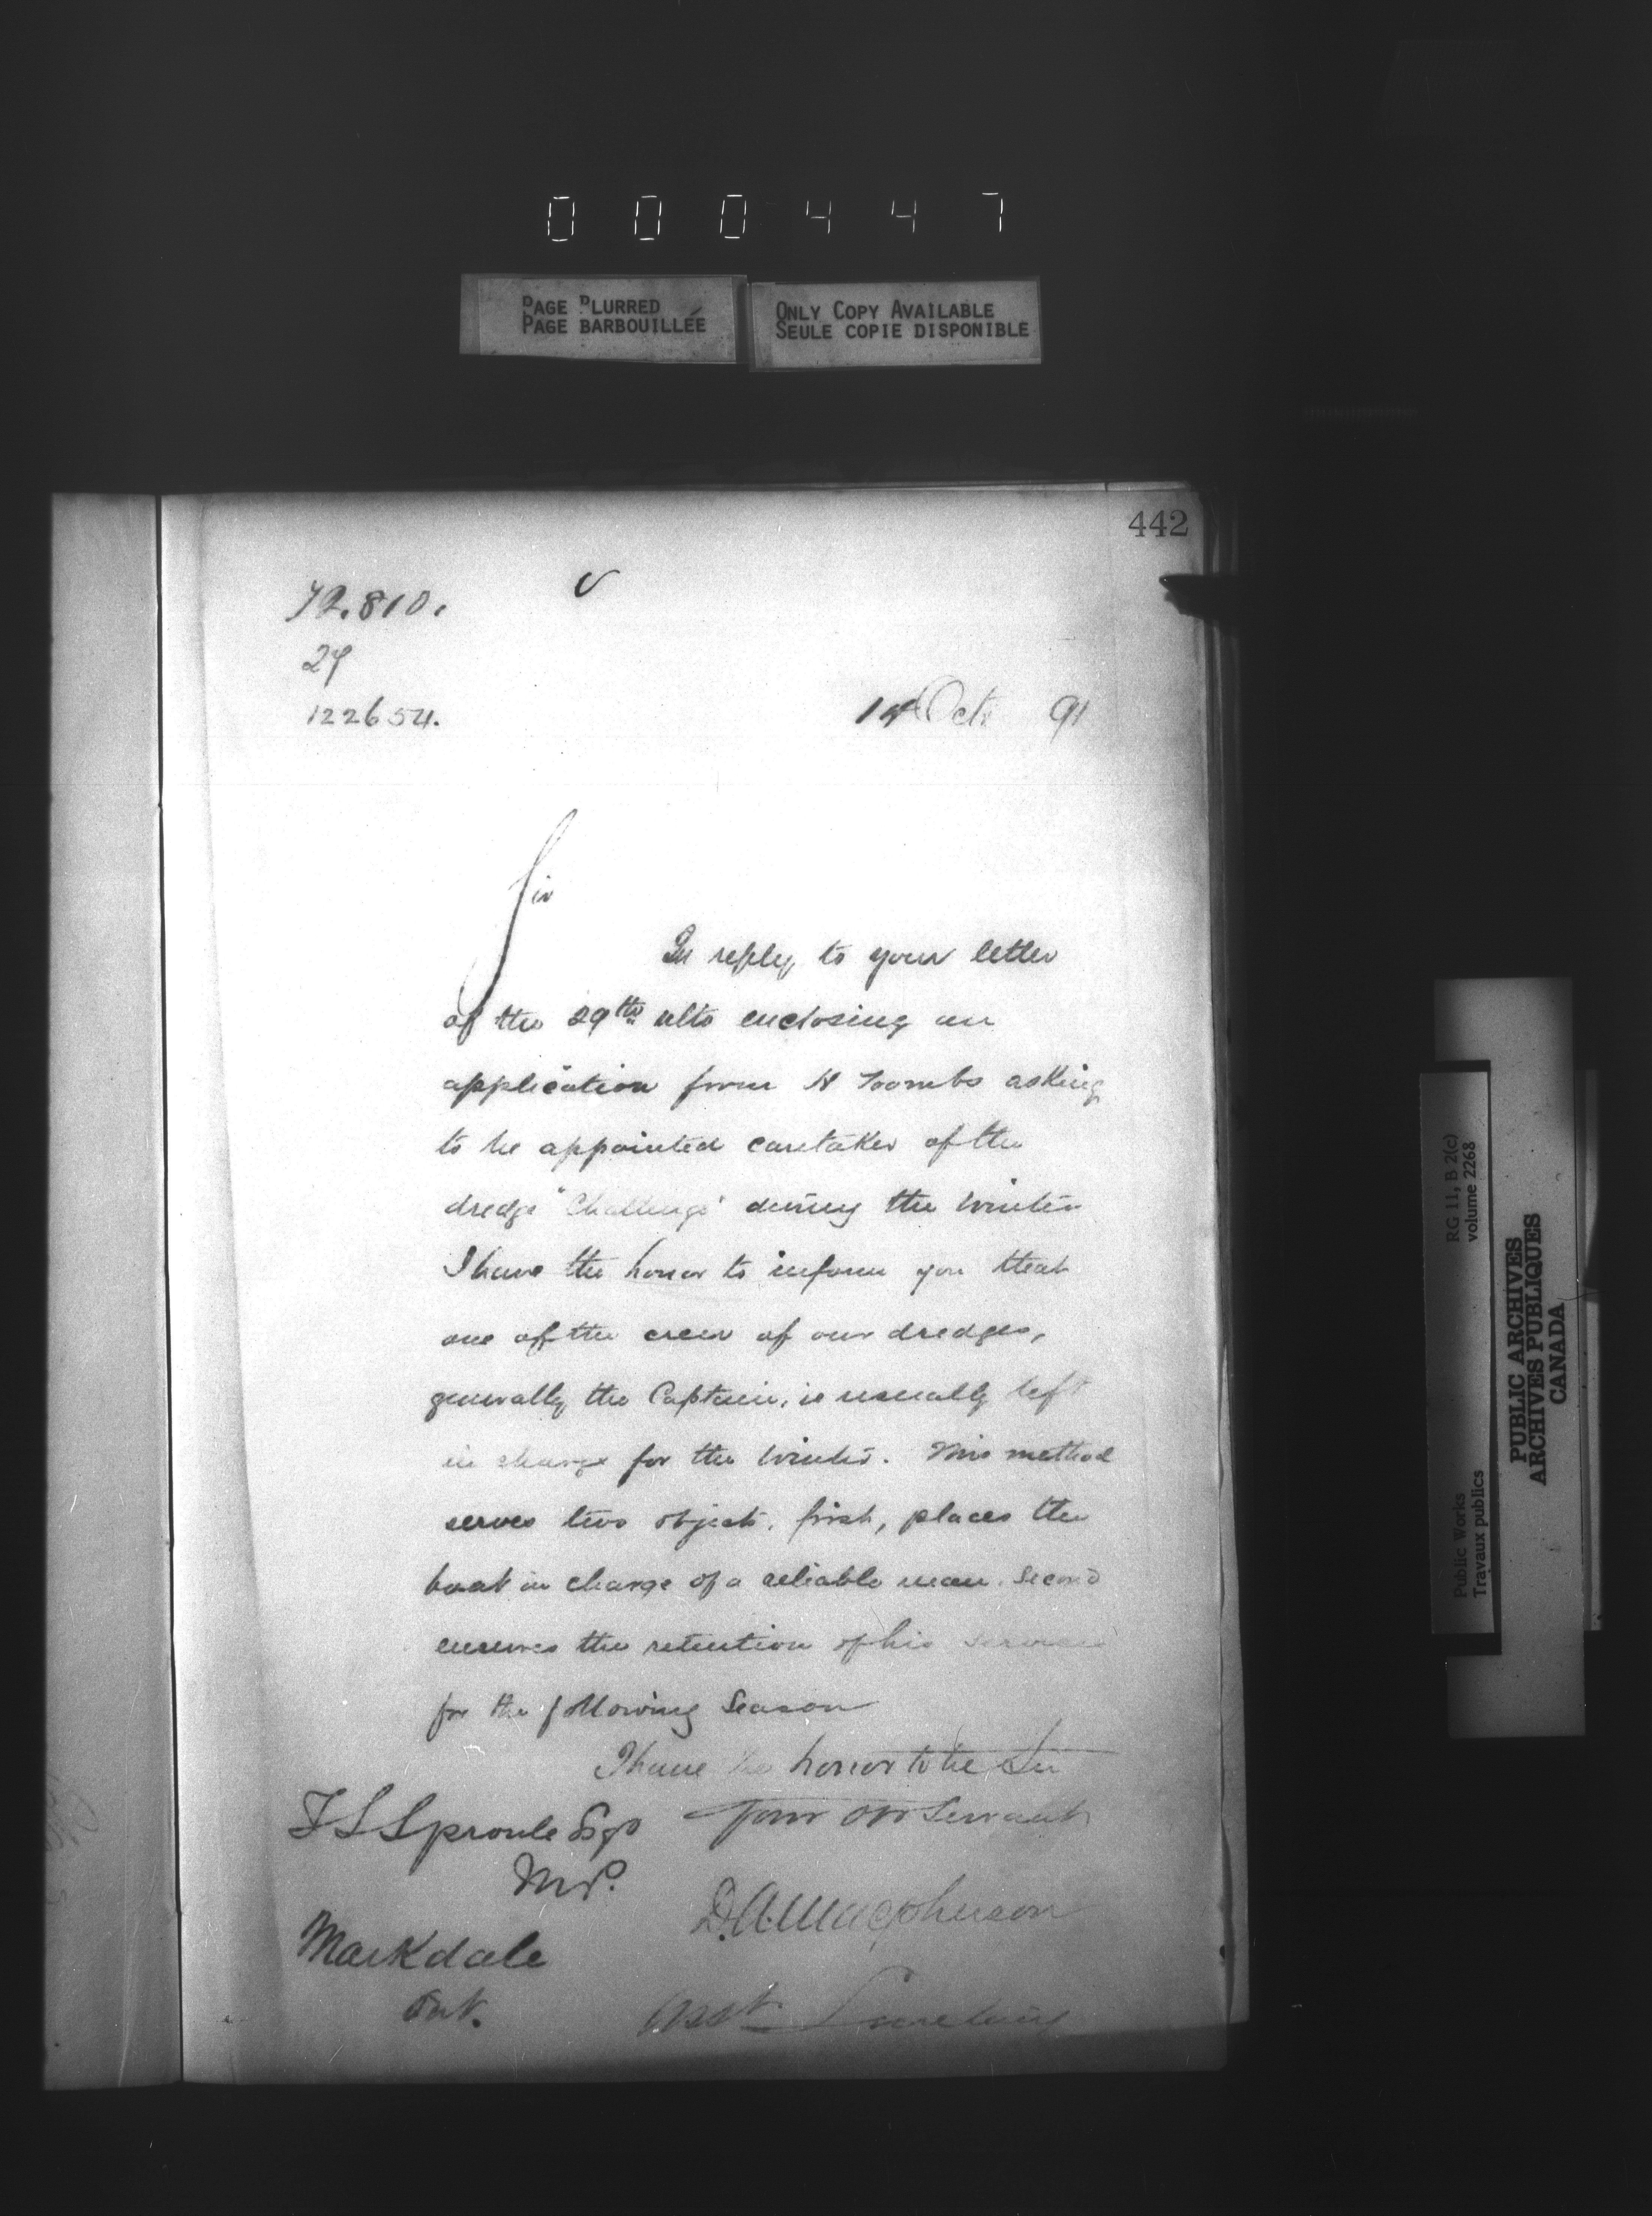 000447
PAGE BLURRED
PAGE BARBOUILLÉE
ONLY COPY AVAILABLE
SEULE COPIE DISPONIBLE
442
72.810.
27
122654.
Oct 91
Sir
In reply to your letter
of the 29th ulto enclosing an
application from H Toombs asking
to be appointed caretaker of the
dredge "Challenge" during the winter
I have the honor to inform you that
one of the crew of our dredges,
generally the Captain, is usually left
in charge for the winter. This method
serves two objects, first, places the
boat in charge of a reliable man. Second
ensures the retention of his services
for the following Season
I have the honor to be Sir
Your Obt Servant
T S Sproule Esqr
M P.
D. A. Macpherson
Markdale
Ont.
Asst Secretary
RG 11, B 2(c)
volume 2268
Public Works
Travaux publics
PUBLIC ARCHIVES
ARCHIVES PUBLIQUES
CANADA